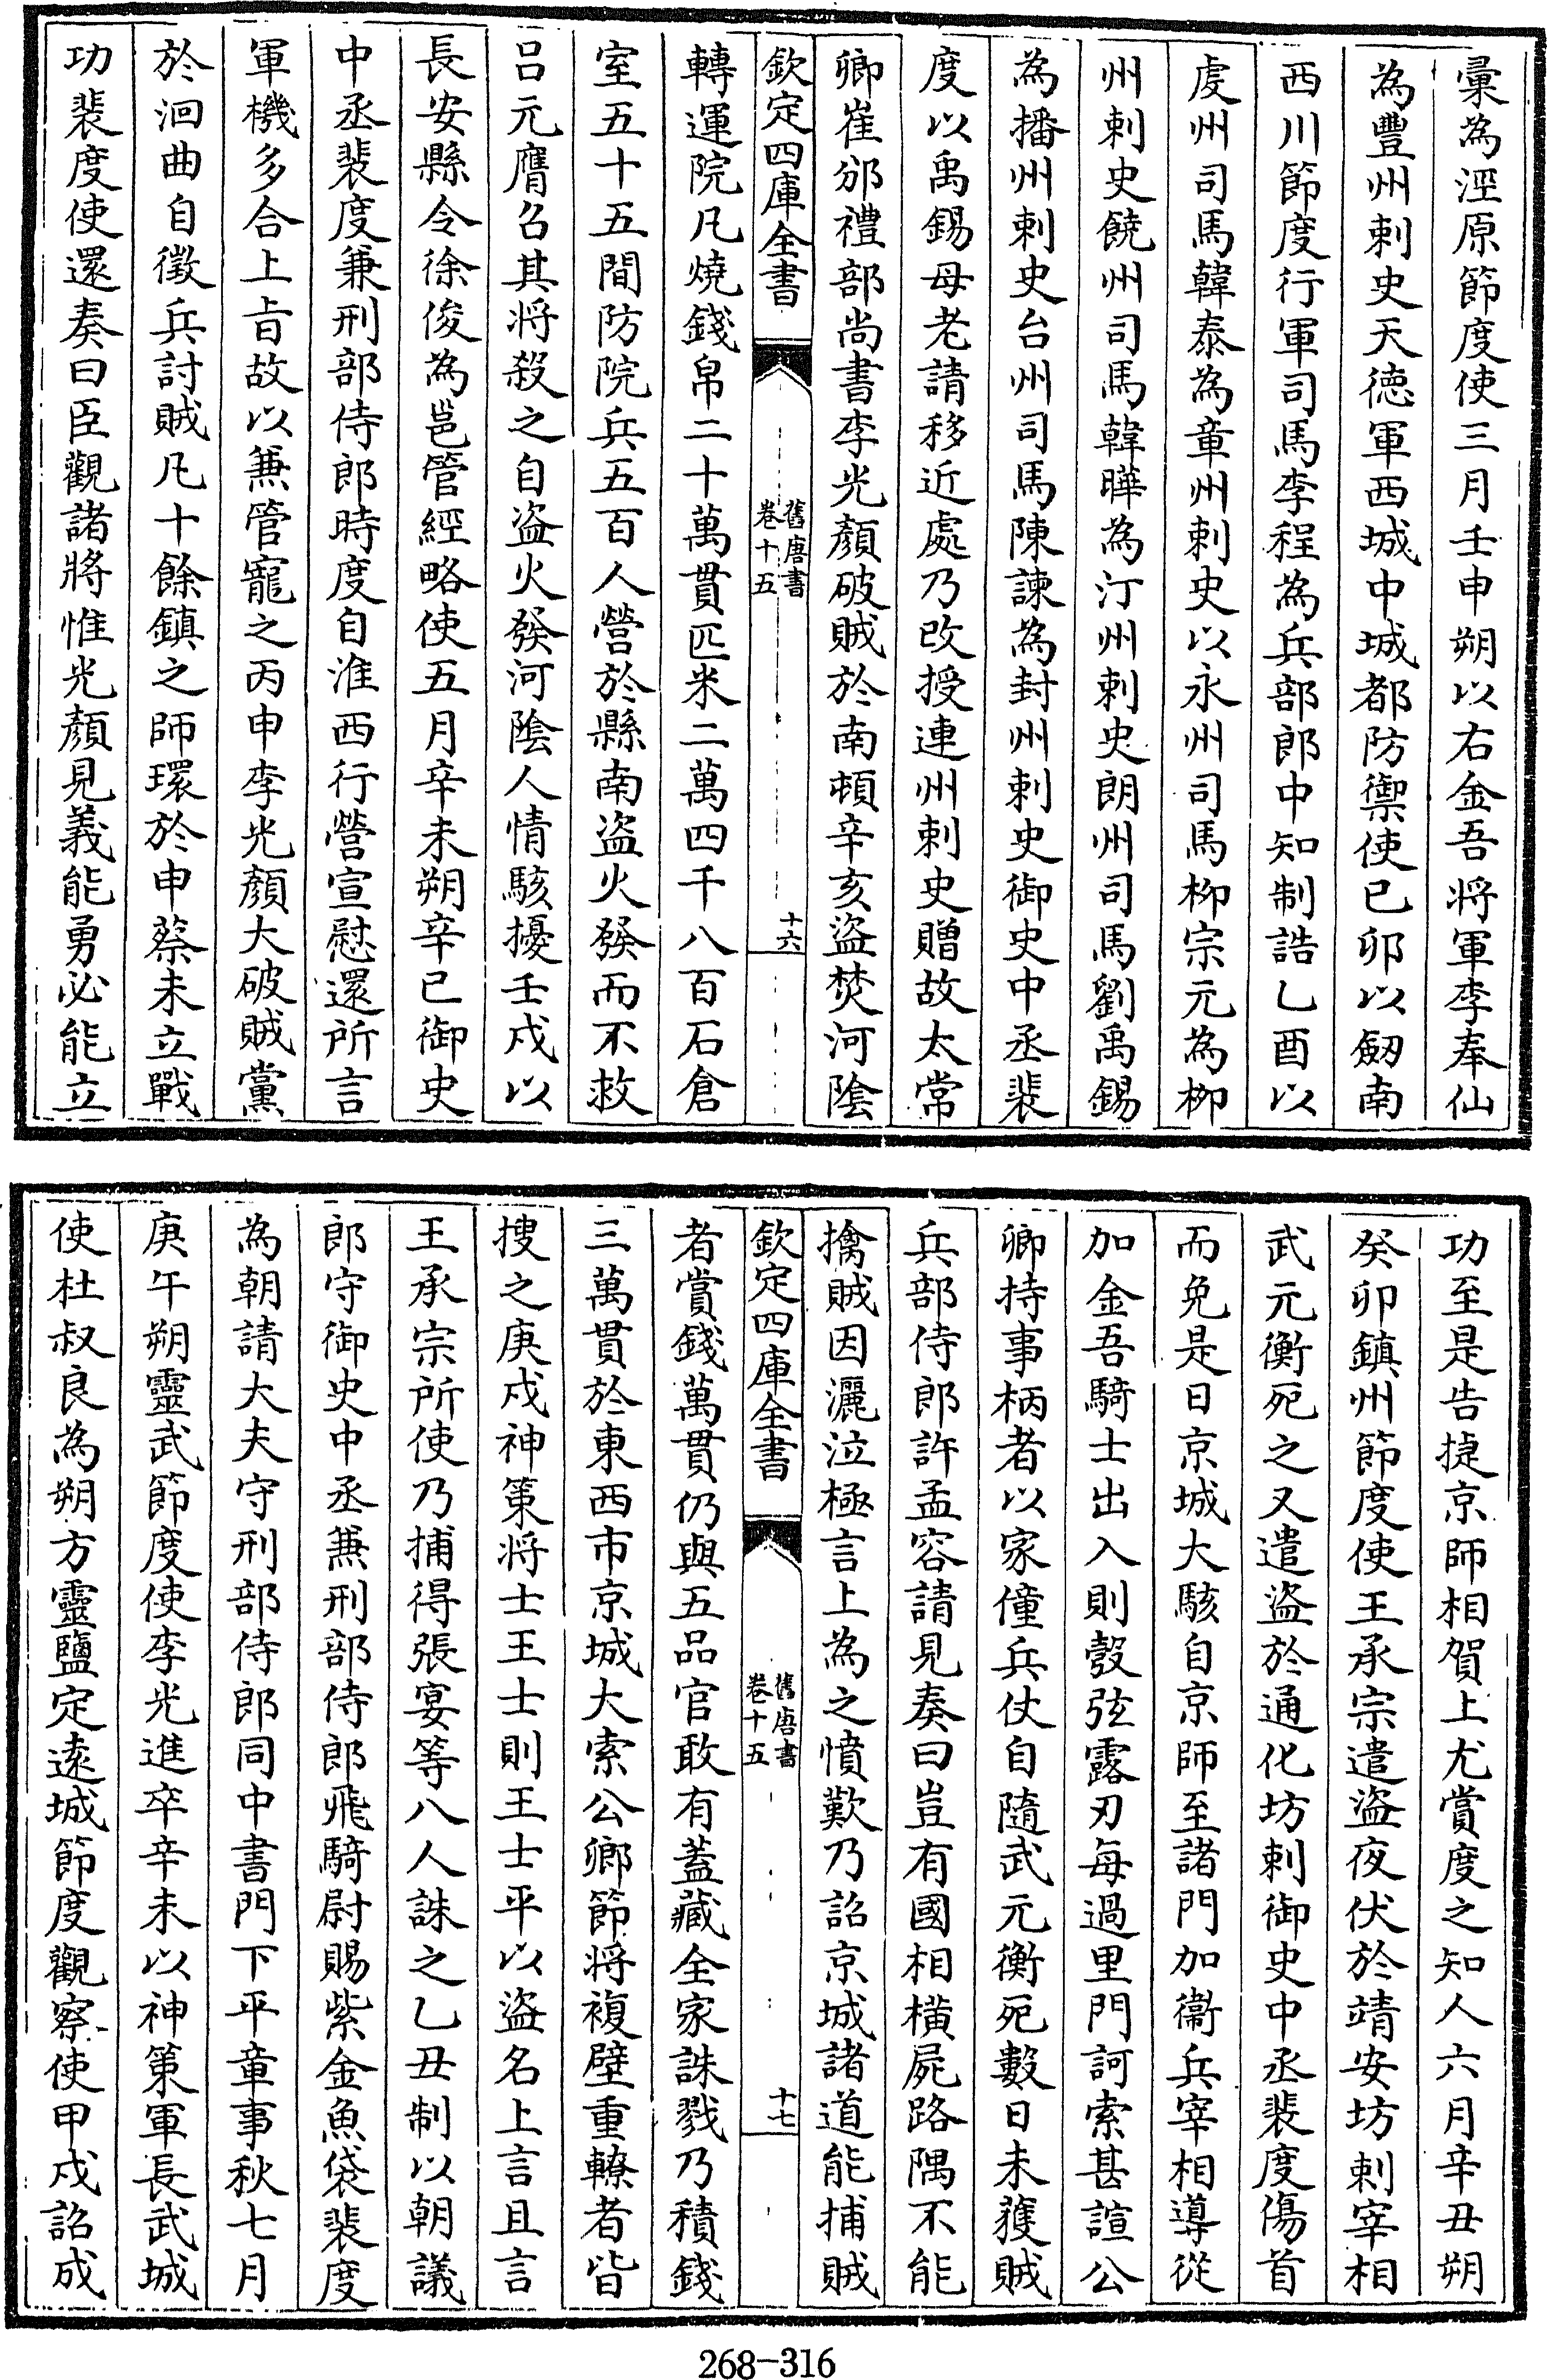 彚為涇原節度使三月壬申朔以右金吾將軍李奉仙
為豐州刺史天徳軍西城中城都防禦使已卯以劒南
西川節度行軍司馬李程為兵部郎中知制誥乙酉以
虔州司馬韓泰為章州刺史以永州司馬栁宗元為栁
州刺史饒州司馬韓曄為汀州刺史朗州司馬劉禹錫
為播州刺史台州司馬陳諫為封州刺史御史中丞裴
度以禹錫母老請移近處乃改授連州刺史贈故太常
卿崔邠禮部尚書李光顔破賊於南頓辛亥盜焚河隂
欽定四庫全書
舊唐書
卷十五
十六
轉運院凡燒錢帛二十萬貫匹米二萬四千八百石倉
室五十五間防院兵五百人營於縣南盜火發而不救
吕元膺召其將殺之自盜火發河隂人情駭擾壬戌以
長安縣令徐俊為邕管經略使五月辛未朔辛已御史
中丞裴度兼刑部侍郎時度自淮西行營宣慰還所言
軍機多合上㫖故以兼管寵之丙申李光顔大破賊黨
於洄曲自徵兵討賊凡十餘鎮之師環於申蔡未立戰
功裴度使還奏曰臣觀諸將惟光顔見義能勇必能立
功至是告捷京師相賀上尤賞度之知人六月辛丑朔
癸卯鎮州節度使王承宗遣盜夜伏於靖安坊刺宰相
武元衡死之又遣盜於通化坊刺御史中丞裴度傷首
而免是日京城大駭自京師至諸門加衞兵宰相導從
加金吾騎士出入則彀弦露刃每過里門訶索甚諠公
卿持事柄者以家僮兵仗自隨武元衡死數日未獲賊
兵部侍郎許孟容請見奏曰豈有國相橫屍路隅不能
擒賊因灑泣極言上為之憤歎乃詔京城諸道能捕賊
欽定四庫全書
舊唐書
卷十五
十七
者賞錢萬貫仍與五品官敢有蓋藏全家誅戮乃積錢
三萬貫於東西市京城大索公卿節將複壁重轑者皆
搜之庚戌神策將士王士則王士平以盜名上言且言
王承宗所使乃捕得張宴等八人誅之乙丑制以朝議
郎守御史中丞兼刑部侍郎飛騎尉賜紫金魚袋裴度
為朝請大夫守刑部侍郎同中書門下平章事秋七月
庚午朔靈武節度使李光進卒辛未以神策軍長武城
使杜叔良為朔方靈鹽定逺城節度觀察使甲戌詔成
268-316